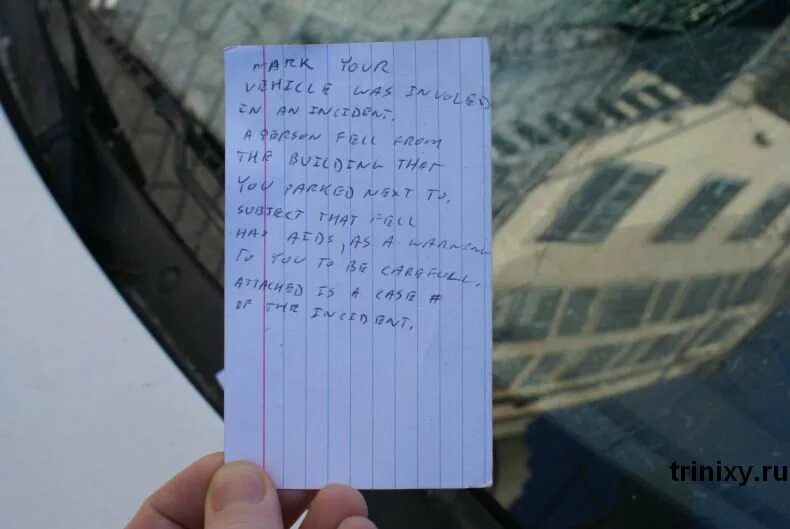 MARK YOUR
VEHICLE WAS INVOLED
IN AN INCIDENT.
A PERSON FELL FROM
THE BUILDING THAT
YOU PARKED NEXT TO.
SUBJECT THAT FELL
HAS AIDS, AS A WARNING
TO YOU TO BE CAREFULL.
ATTACHED IS A CASE #
OF THE INCIDENT.
trinixy.ru